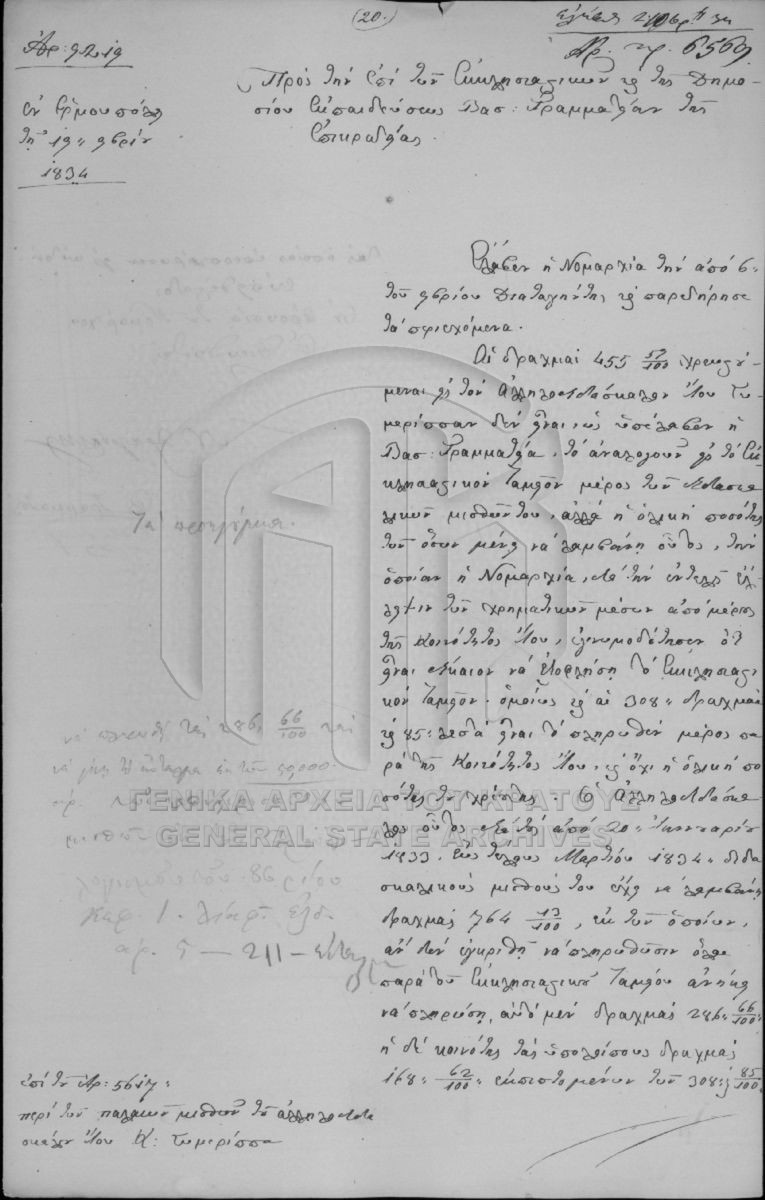 (20.)
Ἀρ: 9219
Ἀρ. πρ. 6569.
ἐν Ἑρμουπόλει
τῇ 19 9βρίου
1834
Πρὸς τὴν ἐπὶ τῶν Ἐκκλησιαστικῶν καὶ τῆς Δημο-
σίου Ἐκπαιδεύσεως Βασ: Γραμματείαν τῆς
Ἐπικρατείας.
Ἔλαβεν ἡ Νομαρχία τὴν ἀπὸ 6
τοῦ 9βρίου Διαταγήν της καὶ παρετήρησε
τὰ περιεχόμενα.
Αἱ δραχμαὶ 455 57/100 χρεωστού-
μεναι εἰς τὸν Ἀλληλοδιδάσκαλον Ἴου Τυ-
μερίσσαν δὲν εἶναι ὡς ὑπέλαβεν ἡ
Βασ: Γραμματεία, τὸ ἀναλογοῦν εἰς τὸ Ἐκ-
κλησιαστικὸν Ταμεῖον μέρος τῶν διδασκα
λικῶν μισθῶν του, ἀλλὰ ἡ ὁλικὴ ποσότης
τῶν ὅσων μένει νὰ λαμβάνῃ οὗτος, τὴν
ὁποίαν ἡ Νομαρχία, διὰ τὴν ἐντελῆ ἔλ-
λειψιν τῶν χρηματικῶν μέσων ἀπὸ μέρους
τῆς Κοινότητος Ἴου, ἐγνωμοδότησεν ὅτι
εἶναι δίκαιον νὰ ἐξοφλήσῃ τὸ Ἐκκλησιαστι-
κὸν Ταμεῖον. ὁμοίως καὶ αἱ 308 δραχμαὶ
καὶ 85 λεπτὰ εἶναι τὸ πληρωθὲν μέρος πα-
ρὰ τῆς Κοινότητος Ἴου, καὶ ὄχι ἡ ὁλικὴ πο-
σότης τοῦ χρέους. Ὁ Ἀλληλοδιδάσκα-
λος οὗτος ἀπὸ 20 Ἰανουαρίου
1833 ἕως τέλους Μαρτίου 1834 διδα
σκαλικοὺς μισθούς του εἶχε νὰ λαμβάνῃ
δραχμὰς 764 43/100, ἐκ τῶν ὁποίων,
ἂν δὲν ἐγκριθῇ νὰ πληρωθῶσιν ὅλαι
παρὰ τοῦ Ἐκκλησιαστικοῦ Ταμείου ἀνήκει
νὰ πληρώσῃ, αὐτὸ μὲν δραχμὰς 286 66/100
ἡ δὲ κοινότης τὰς ὑπολοίπους δραχμὰς
168 62/100 ἐκπιπτομένων τῶν 308 καὶ 85/100
Τὰ προηγούμενα.
νὰ πληρωθῇ τὰς 286 66/100
50,000
ἐπὶ τοῦ Ἀρ: 5617
περὶ τῶν παλαιῶν μισθῶν τοῦ ἀλληλοδιδα
σκάλου Ἴου Κ: Τυμερίσσα
ΓΕΝΙΚΑ ΑΡΧΕΙΑ ΤΟΥ ΚΡΑΤΟΥΣ
GENERAL STATE ARCHIVES